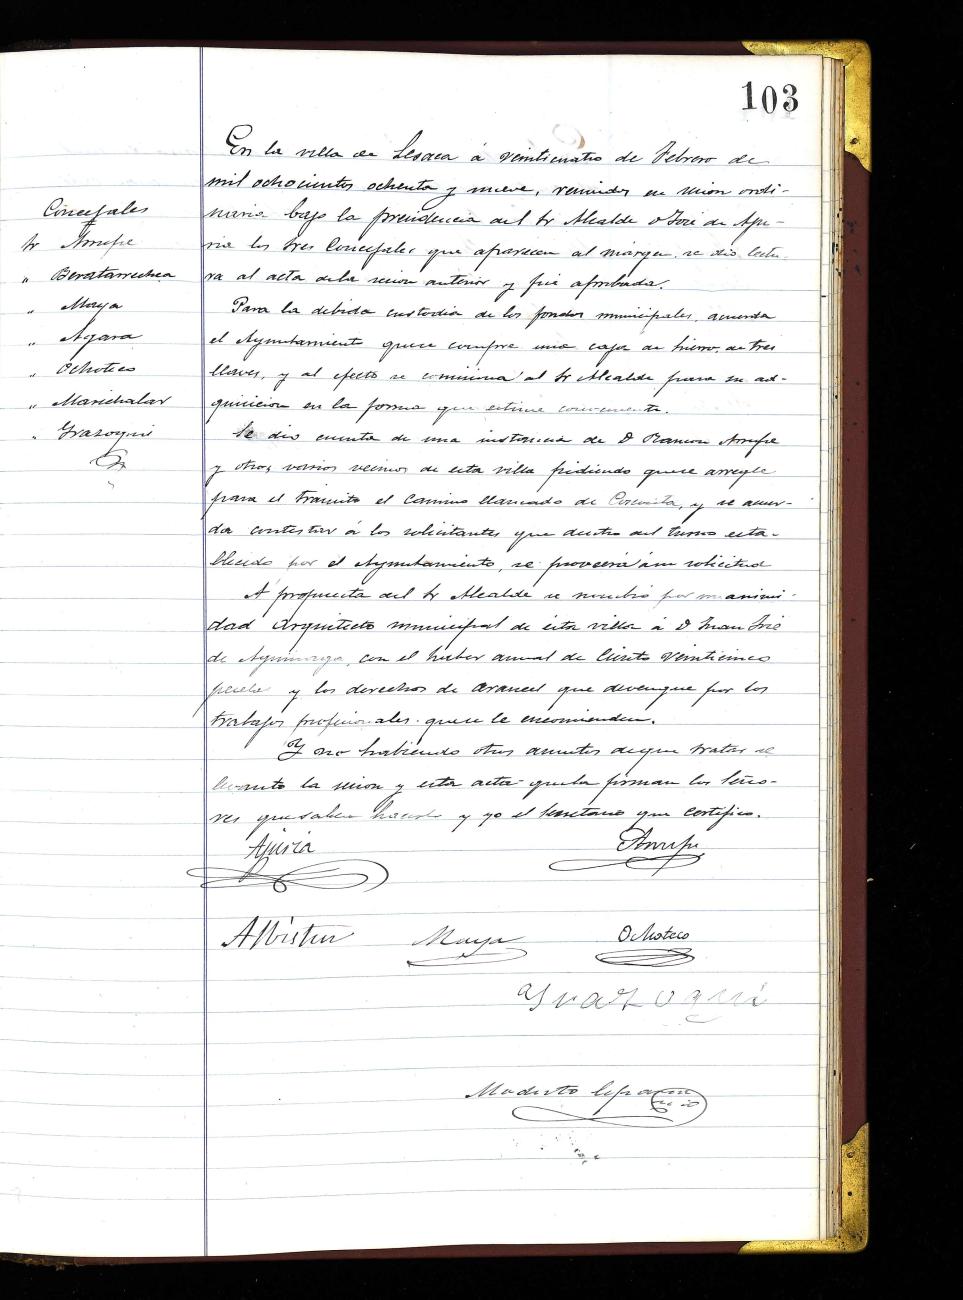 103
En la villa de Lesaca á veinticuatro de Febrero de
mil ochocientos ochenta y nueve, reunidos en sesion ordi-
naria bajo la presidencia del Sr Alcalde D José de Aju-
ria los tres Concejales que aparecen al márgen, se dio lectu-
ra al acta dela sesion anterior y fué aprobada.
Concejales
Sr Arrupe
" Beratarrechea
" Maya
" Agara
" Ochoteco
" Marichalar
" Yrazoqui
Para la debida custodia de los fondos municipales, acuerda
el Ayuntamiento quese compre una caja de hierro, de tres
llaves, y al efecto se comisiona al Sr Alcalde para su ad-
quisicion en la forma que estime conveniente.
Se dio cuenta de una instancia de D Ramon Arrupe
y otros varios vecinos de esta villa pidiendo quese arregle
para el tránsito el camino llamado de y se acuer-
da contestar á los solicitantes que dentro del turno esta-
blecido por el Ayuntamiento, se proveerá á su solicitud
A propuesta del Sr Alcalde se nombró por unanimi-
dad Arquitecto municipal de ésta villa á D Juan José
de con el haber anual de Ciento veinticinco
pesetas y los derechos de arancel que devengue por los
trabajos profesionales quese le encomienden.
Y no habiendo otros asuntos deque tratar se
levanto la sesion y esta acta quela firman los Seño-
res quesaben hacerlo y yo el Secretario que certifico.
Ajuria
Arrupe
Albistur
Maya
Ochoteco
Yrazoqui
Modesto